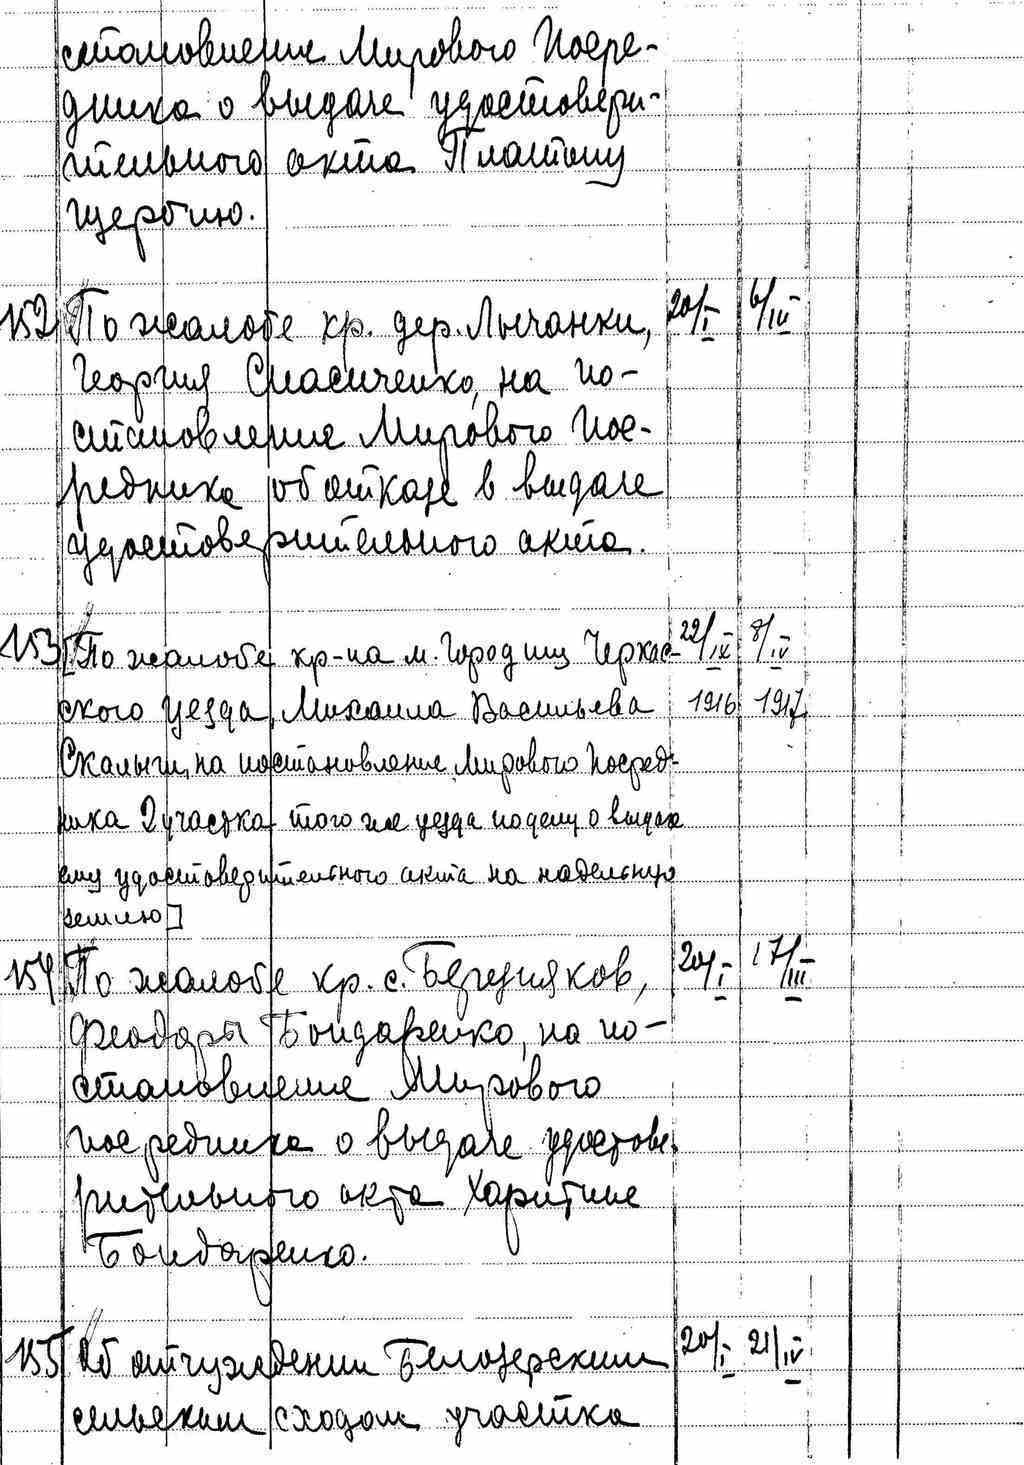 становление Мирового Посре-
дника о выдаче удостовери-
тельного акта Платону
Щербию.
152 По жалобе кр. дер. Лычанки, 20/I 6/III
Георгия Спасиченко, на по-
становление Мирового Пос-
редника об отказе в выдаче
удостоверительного акта.
153 [По жалобе кр-на м. Городищ Черкас- 22/IX 8/IV
ского уезда, Михаила Васильева 1916 1917
Скалыги, на постановление Мирового Посред-
ника 2 участка того же уезда по делу о выдаче
ему удостоверительного акта на надельную
землю]
154 По жалобе кр. с. Безугляков, 20/I 17/III
Феодоры Бондаренко, на по-
становление Мирового
посредника о выдаче удостове-
рительного акта Харитине
Бондаренко.
155 Об отчуждении Белозерским 20/I 21/IV
сельским сходом участка